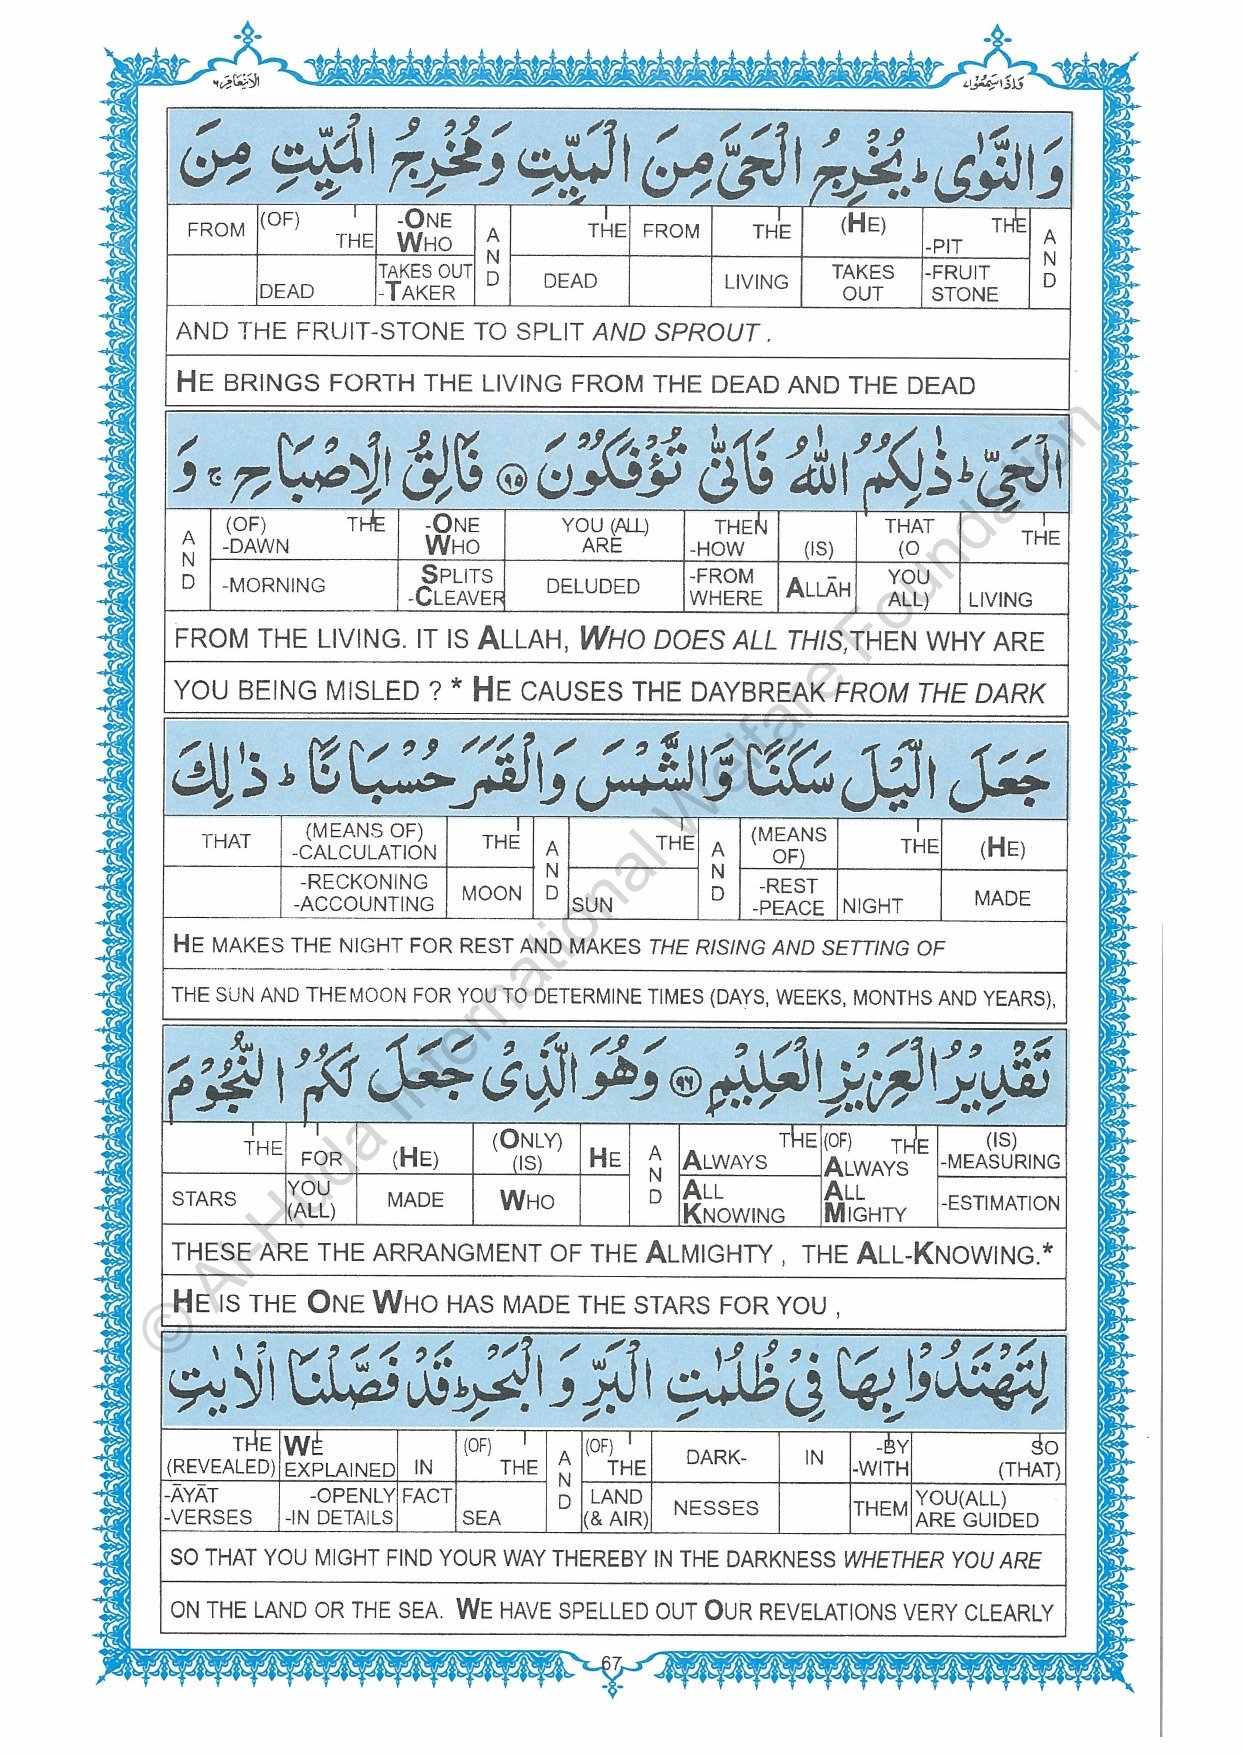 الانعام ٦
واذاسمعوا ٧
وَالنَّوٰى ؕ يُخْرِجُ الْحَىَّ مِنَ الْمَيِّتِ وَمُخْرِجُ الْمَيِّتِ مِنَ
FROM (OF) THE -ONE WHO AND THE FROM THE (HE) THE -PIT AND
DEAD TAKES OUT -TAKER DEAD LIVING TAKES OUT -FRUIT STONE
AND THE FRUIT-STONE TO SPLIT AND SPROUT .
HE BRINGS FORTH THE LIVING FROM THE DEAD AND THE DEAD
الْحَىِّ ؕ ذٰلِكُمُ اللّٰهُ فَاَنّٰى تُؤْفَكُوْنَ ۹۵ فَالِقُ الْاِصْبَاحِ ۚ وَ
AND (OF) THE -DAWN -ONE WHO YOU (ALL) ARE THEN -HOW (IS) THAT (O THE
-MORNING SPLITS -CLEAVER DELUDED -FROM WHERE ALLĀH YOU ALL) LIVING
FROM THE LIVING. IT IS ALLAH, WHO DOES ALL THIS, THEN WHY ARE
YOU BEING MISLED ? * HE CAUSES THE DAYBREAK FROM THE DARK
جَعَلَ الَّيْلَ سَكَنًا وَّالشَّمْسَ وَالْقَمَرَ حُسْبَانًا ؕ ذٰلِكَ
THAT (MEANS OF) -CALCULATION THE AND THE AND (MEANS OF) THE (HE)
-RECKONING -ACCOUNTING MOON SUN -REST -PEACE NIGHT MADE
HE MAKES THE NIGHT FOR REST AND MAKES THE RISING AND SETTING OF
THE SUN AND THEMOON FOR YOU TO DETERMINE TIMES (DAYS, WEEKS, MONTHS AND YEARS),
تَقْدِيْرُ الْعَزِيْزِ الْعَلِيْمِ ۹۶ وَهُوَ الَّذِىْ جَعَلَ لَكُمُ النُّجُوْمَ
THE FOR (HE) (ONLY) (IS) HE AND THE ALWAYS (OF) THE ALWAYS (IS) -MEASURING
STARS YOU (ALL) MADE WHO ALL KNOWING ALL MIGHTY -ESTIMATION
THESE ARE THE ARRANGMENT OF THE ALMIGHTY , THE ALL-KNOWING.*
HE IS THE ONE WHO HAS MADE THE STARS FOR YOU ,
لِتَهْتَدُوْا بِهَا فِىْ ظُلُمٰتِ الْبَرِّ وَ الْبَحْرِ ؕ قَدْ فَصَّلْنَا الْاٰيٰتِ
THE (REVEALED) WE EXPLAINED IN (OF) THE AND (OF) THE DARK- IN -BY -WITH SO (THAT)
-ĀYĀT -VERSES -OPENLY -IN DETAILS FACT SEA LAND (& AIR) NESSES THEM YOU(ALL) ARE GUIDED
SO THAT YOU MIGHT FIND YOUR WAY THEREBY IN THE DARKNESS WHETHER YOU ARE
ON THE LAND OR THE SEA. WE HAVE SPELLED OUT OUR REVELATIONS VERY CLEARLY
67
© Al-Huda International Welfare Foundation